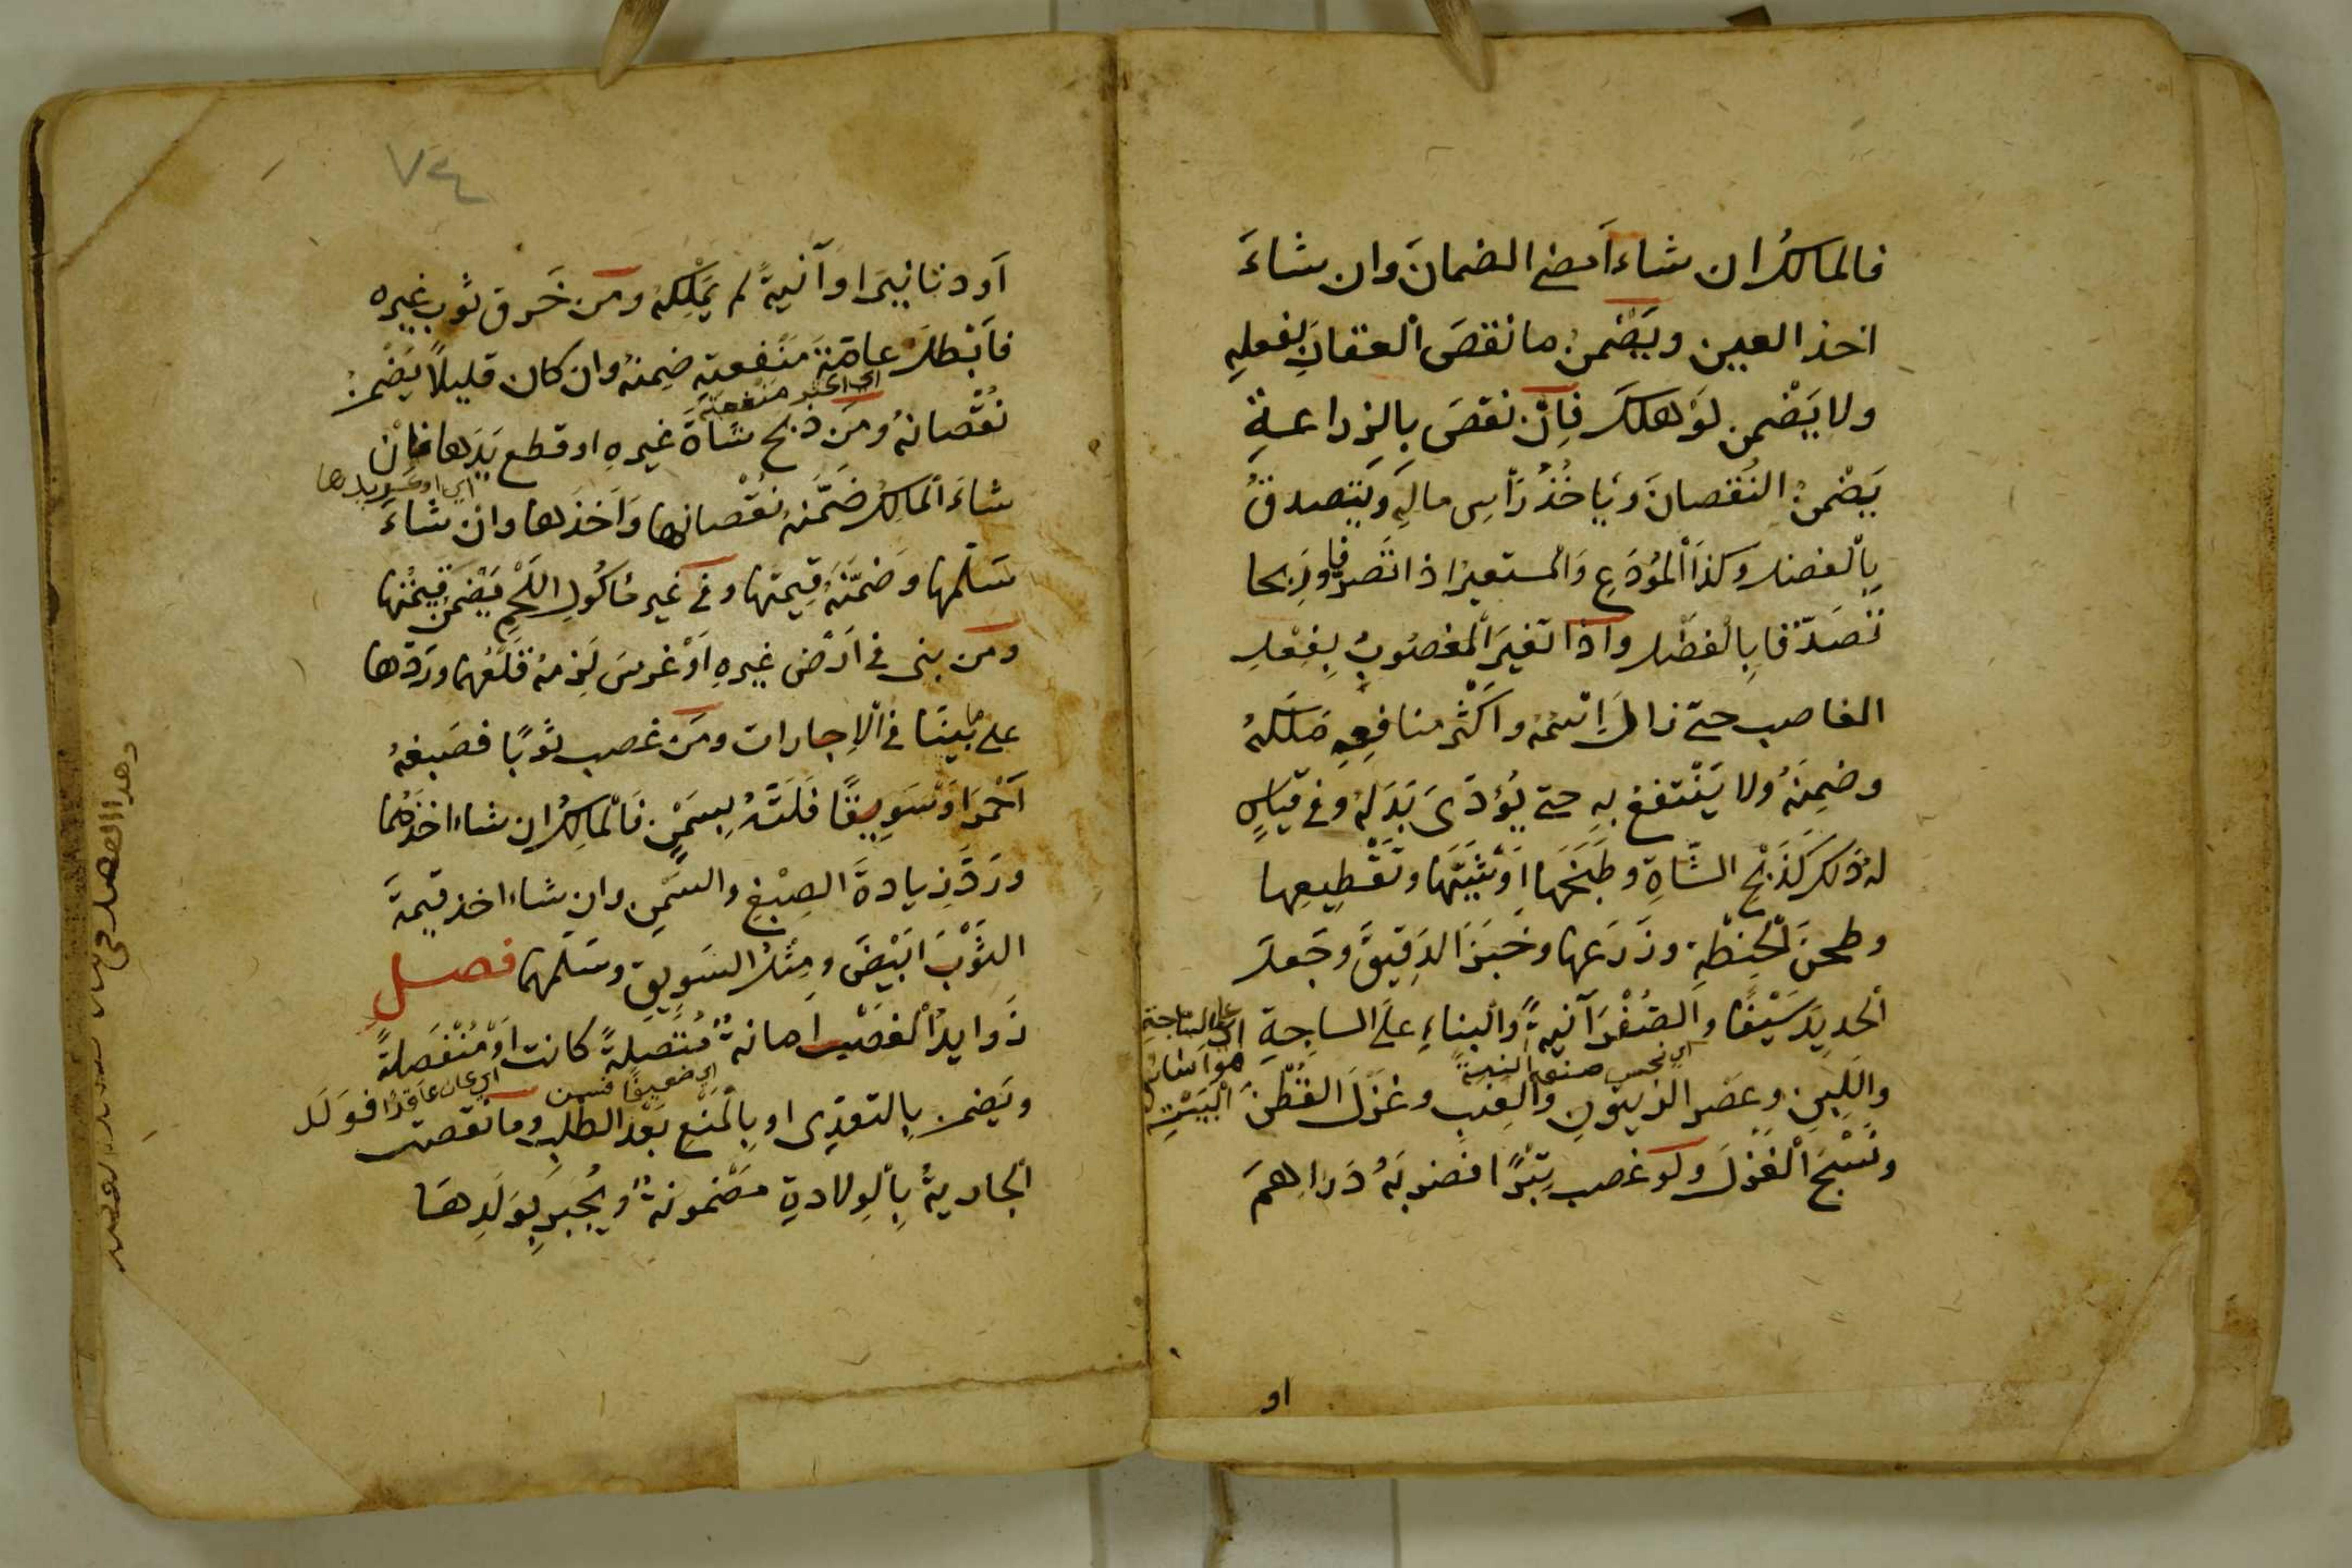 فالمالك ان شاء امضى الضمان وان شاء
اخذ العين ويضمن ما نقص العقار بفعله
ولا يضمن لو هلك فان نقص بالزراعة
يضمن النقصان وياخذ راس ماله ويتصدق
بالفضل وكذا المودع والمستعير اذا تصرفا وربحا
تصدقا بالفضل واذا تغير المغصوب بفعل
الغاصب حتى زال اسمه واكثر منافعه ملكه
وضمنه ولا ينتفع به حتى يؤدى بدله وفى قياس
له ذلك كذبح الشاة وطبخها او شيتها وتقطيعها
وطحن الحنطة وزرعها وخبز الدقيق وجعل
الحديد سيفا والصفر آنية والبناء على الساجة
اي على الساجة
هو اساس
البيت
اي نحس صنعه آنية
واللبن وعصر الزيتون والعنب وغزل القطن
ونسج الغزل ولو غصب تبرا فضربه دراهم
او
٧٤
او دنانير او آنية لم يملكه ومن خرق ثوب غيره
فابطل عامة منفعته ضمنه وان كان قليلا يضمن
اي اكثر منفعته
نقصانه ومن ذبح شاة غيره او قطع يدها فان
شاء المالك ضمنه نقصانها واخذها وان شاء
سلمها وضمنه قيمتها وفى غير ماكول اللحم يضمن قيمتها
ومن بنى فى ارض غيره او غرس لزمه قلعهما وردها
على ما بينا فى الاجارات ومن غصب ثوبا فصبغه
احمر او سويقا فلته بسمن فالمالك ان شاء اخذهما
ورد زيادة الصبغ والسمن وان شاء اخذ قيمة
الثوب ابيض ومثل السويق وسلمهما فصل
زوايد الغصب امانة متصلة كانت او منفصلة
اي ضعيفا فسمن
ويضمن بالتعدى او بالمنع بعد الطلب وما نقصت
الجارية بالولادة مضمونة ويجبر بولدها